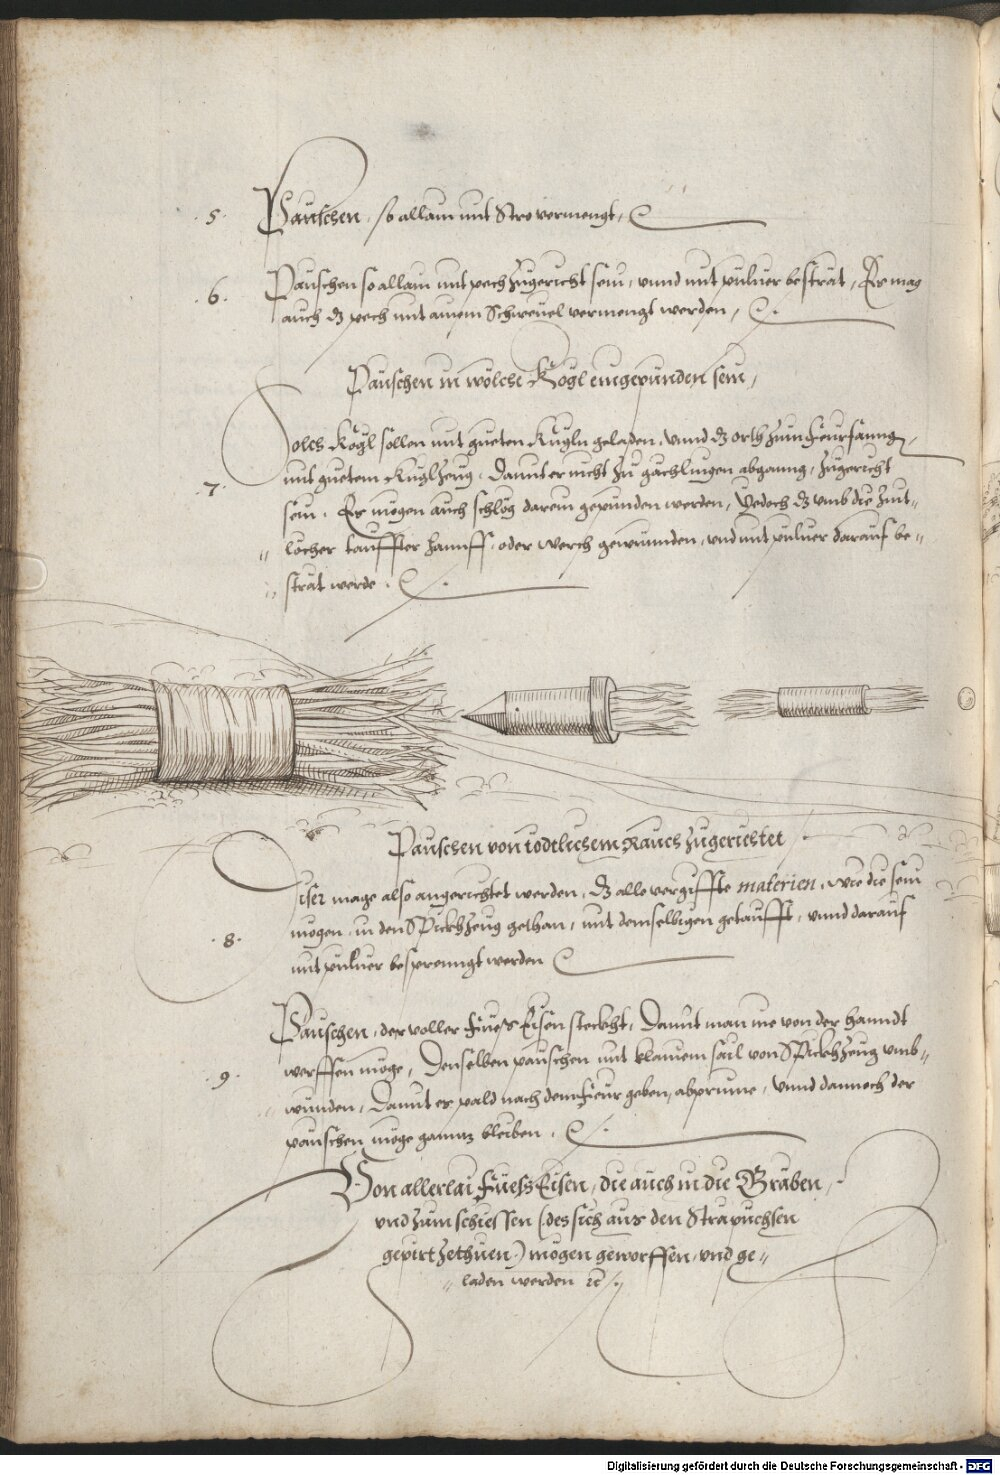 .5. Pauschen, so allain mit Stro vermengt,
.6. Pauschen so allain mit pech zugericht sein, vnnd mit puluer besträt, Er mag
auch dz pech mit ainem Schweuel vermengt werden,
Pauschen in wölche Kögl eingepunden sein,
Solch Kögl sollen mit gueten Kugln geladen, vnnd dz orth zum feurfanng,
.7. mit guetem Kuglzeug, Damit er nicht zu gächlingen abganng, zugericht
sein. Er mögen auch schlög darein gepunden werden, Yedoch dz vmb die zint=
locher tauffter hanff, oder werch gewunden, vnd mit puluer darauf be=
strät werde.
Pauschen von tödtlichem Rauch zugerichtet
Diser mage also angerichtet werden, dz alle vergiffte materien, wie die sein
.8. mögen, in den Pickhzeug gethan, mit demselbigen getaufft, vnnd darauf
mit puluer besprenngt werden
Pauschen, der voller fues Eisen steckht, Damit man ine von der hanndt
.9. werffen möge, Denselben pauschen mit klainem sail von Pickhzeug vmb=
wunden, Damit er pald nach dem feur geben, abprinne, vnnd dannoch der
pauschen möge gannz bleiben.
Von allerlai fuess Eisen, die auch in die Gräben,
vnd zum schiessen (des sich aus den Strapuchsen
gepirt zethuen) mögen geworffen, vnd ge=
laden werden ꝛc
Digitalisierung gefördert durch die Deutsche Forschungsgemeinschaft - DFG